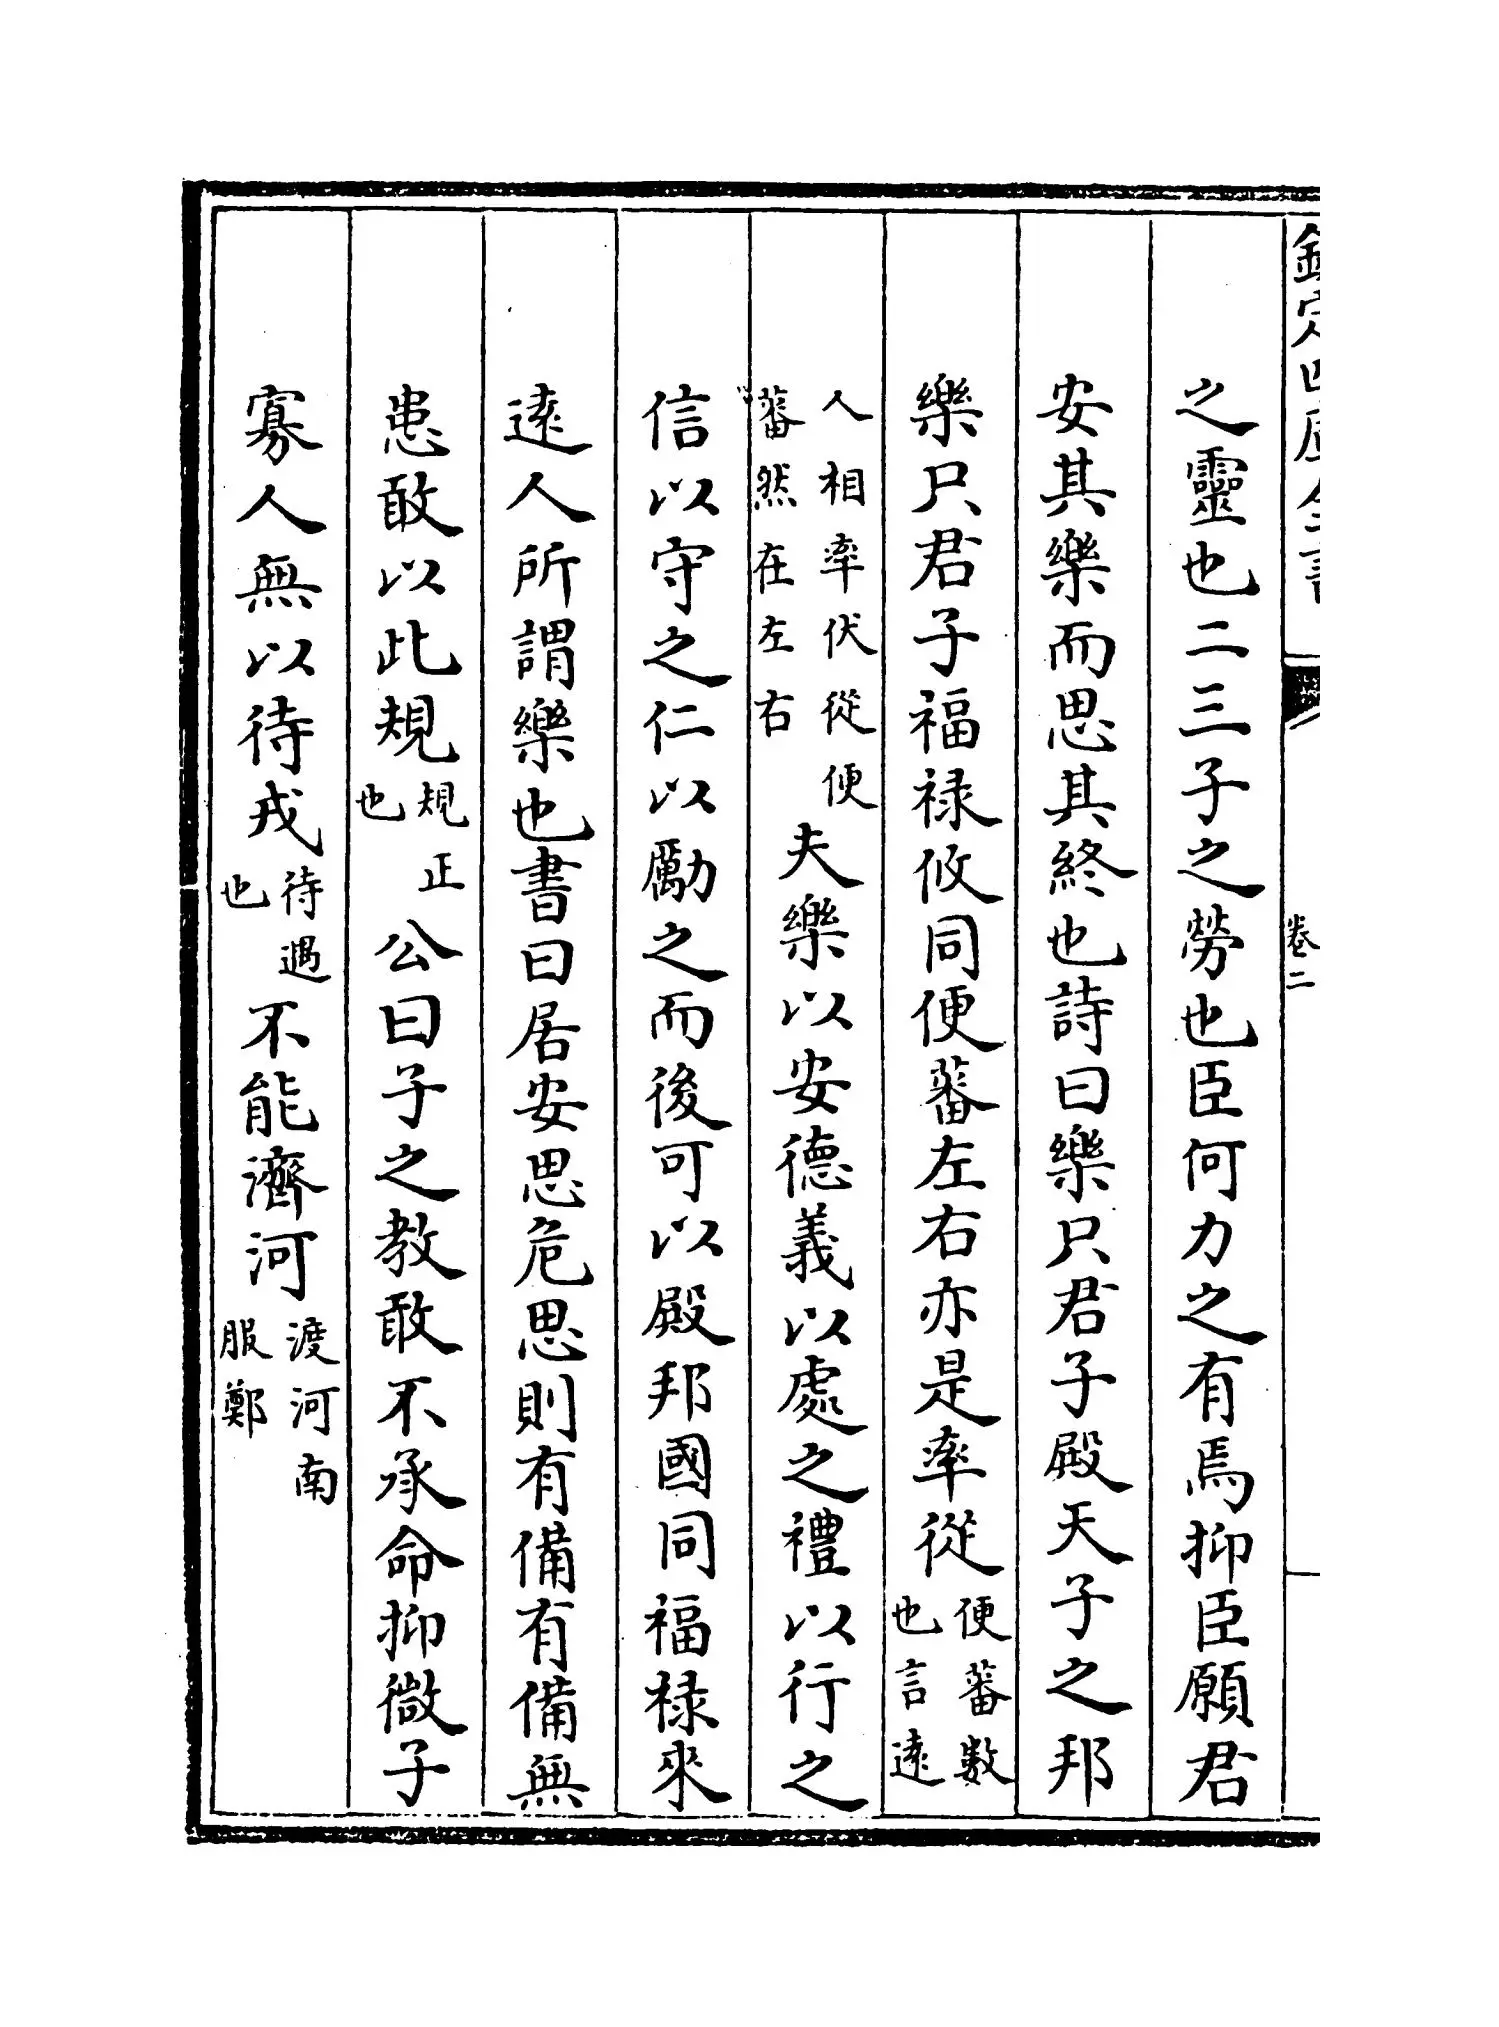 欽定四庫全書
卷二
之靈也二三子之勞也臣何力之有焉抑臣願君
安其樂而思其終也詩曰樂只君子殿天子之邦
樂只君子福禄攸同便蕃左右亦是率從便蕃數也言逺
人相率伏從便蕃然在左右夫樂以安德義以處之禮以行之
信以守之仁以勵之而後可以殿邦國同福禄來
逺人所謂樂也書曰居安思危思則有備有備無
患敢以此規規正也公曰子之教敢不承命抑微子
寡人無以待戎待遇也不能濟河渡河南服鄭